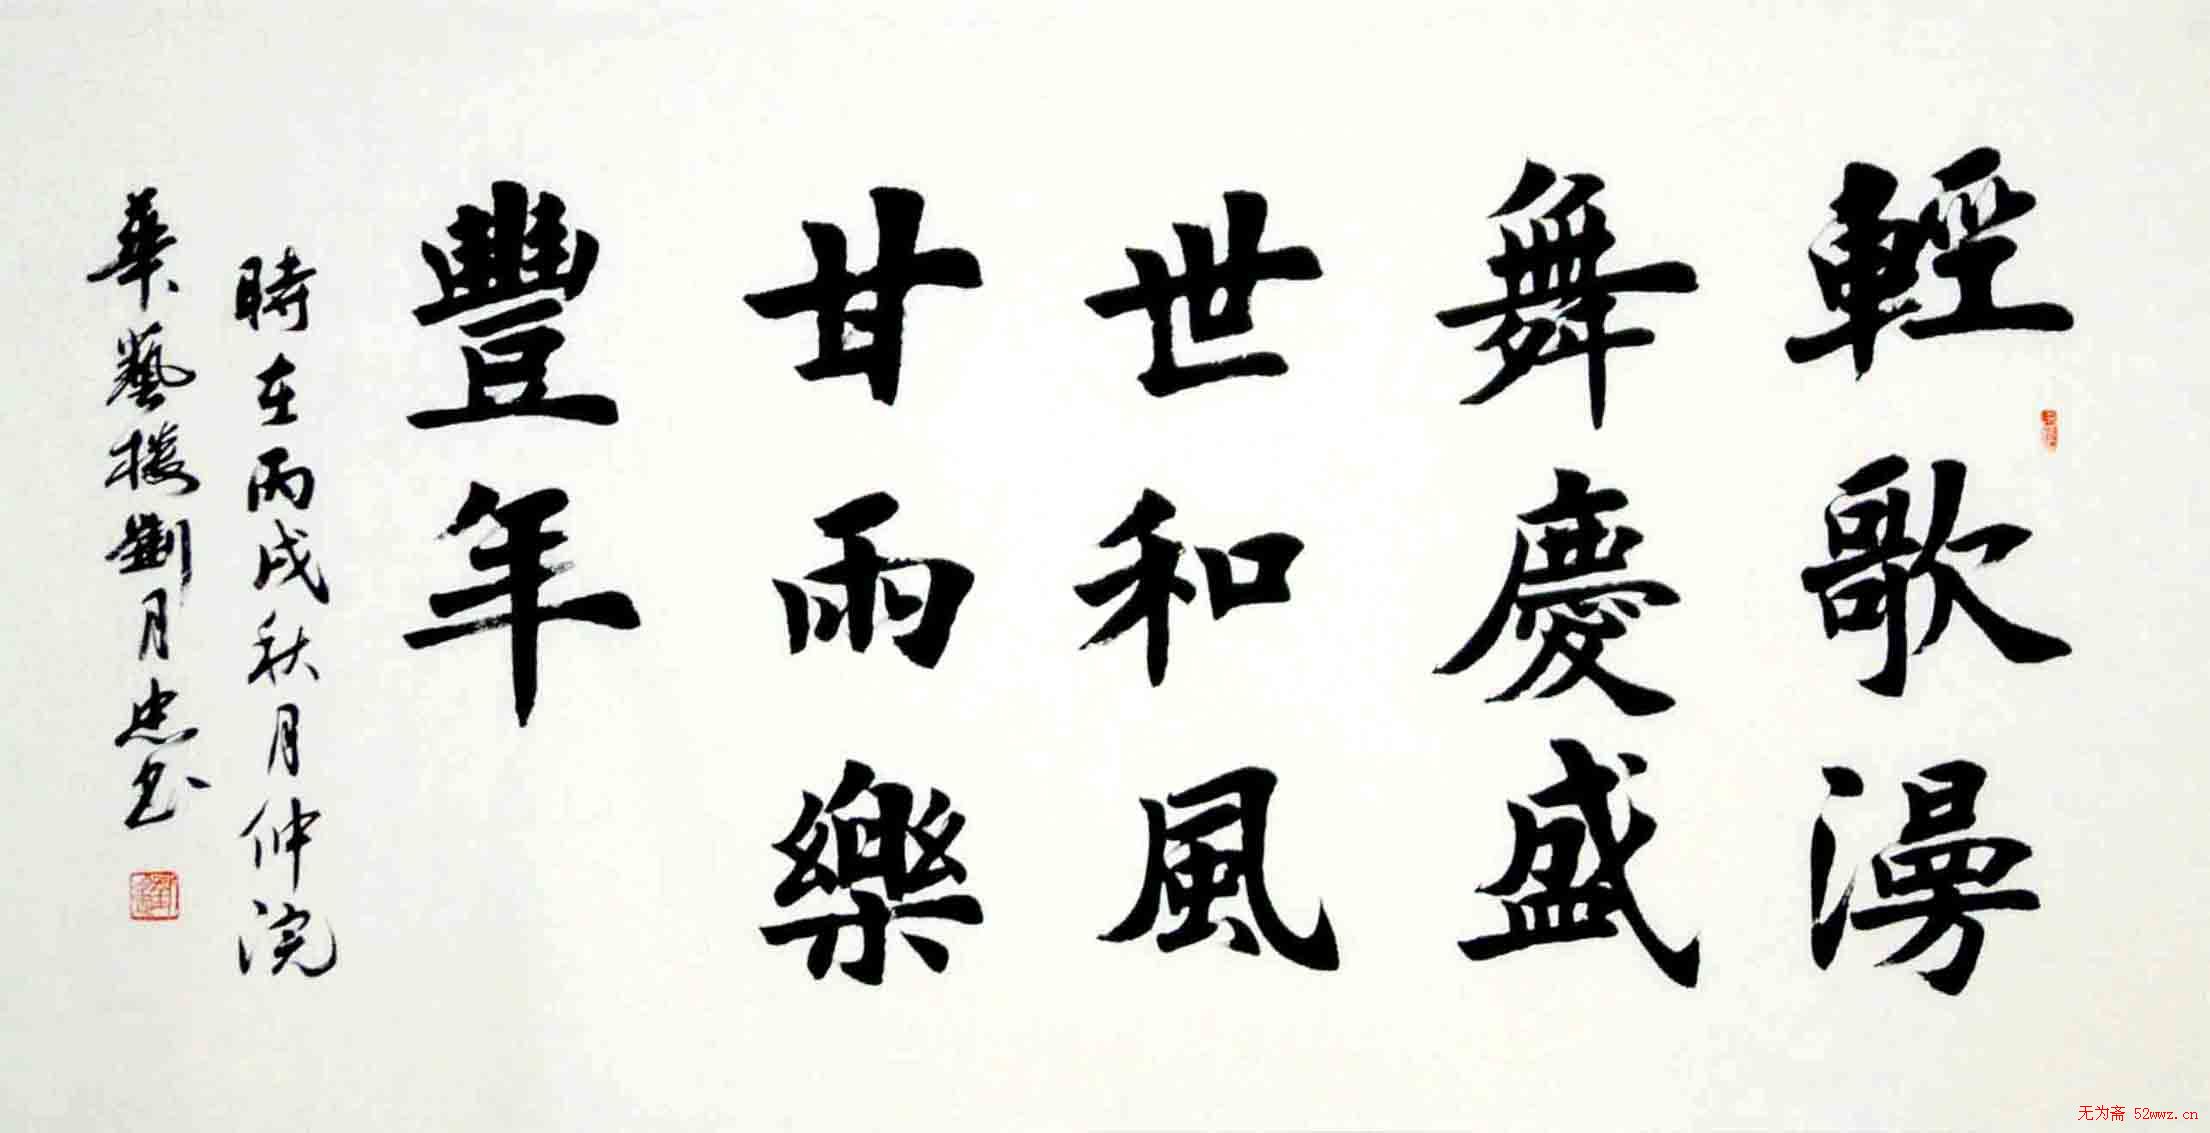 輕歌漫
舞慶盛
世和風
甘雨樂
豐年
時在丙戌秋月仲浣
華藝樓劉月忠书
无为斋 52wwz.cn